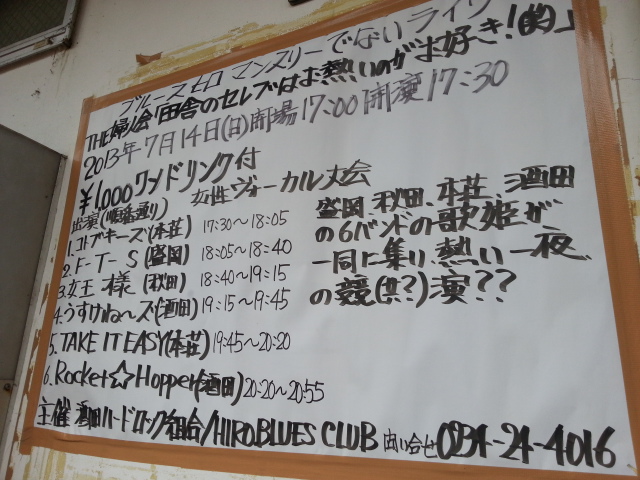 ブルースゼロ マンスリーでないライヴ
THE婦人会「田舎のセレブはお熱いのがお好〜き!(笑)」
2013年7月14日(日)開場17:00開演17:30
¥1,000ワンドリンク付
女性ヴォーカル大会
出演(順番通り)
1.コトブキーズ(本荘) 17:30〜18:05
2.F-T-S(盛岡) 18:05〜18:40
3.女王様(秋田) 18:40〜19:15
4.うすけね〜ズ(酒田) 19:15〜19:45
5.TAKE IT EASY(本荘) 19:45〜20:20
6.Rocket☆Hopper(酒田) 20:20〜20:55
盛岡、秋田、本荘、酒田
の6バンドの歌姫が
一同に集り、熱い一夜
の競(共?)演??
主催 酒田ハードロック組合/HIRO.BLUES CLUB 問い合せ0234-24-4016